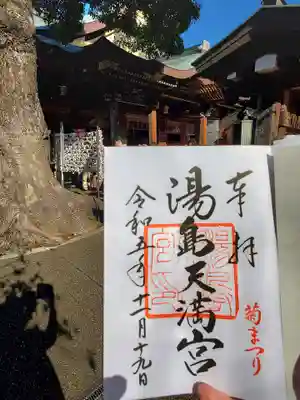 奉拝
湯島天満宮
令和五年十一月十九日
菊まつり